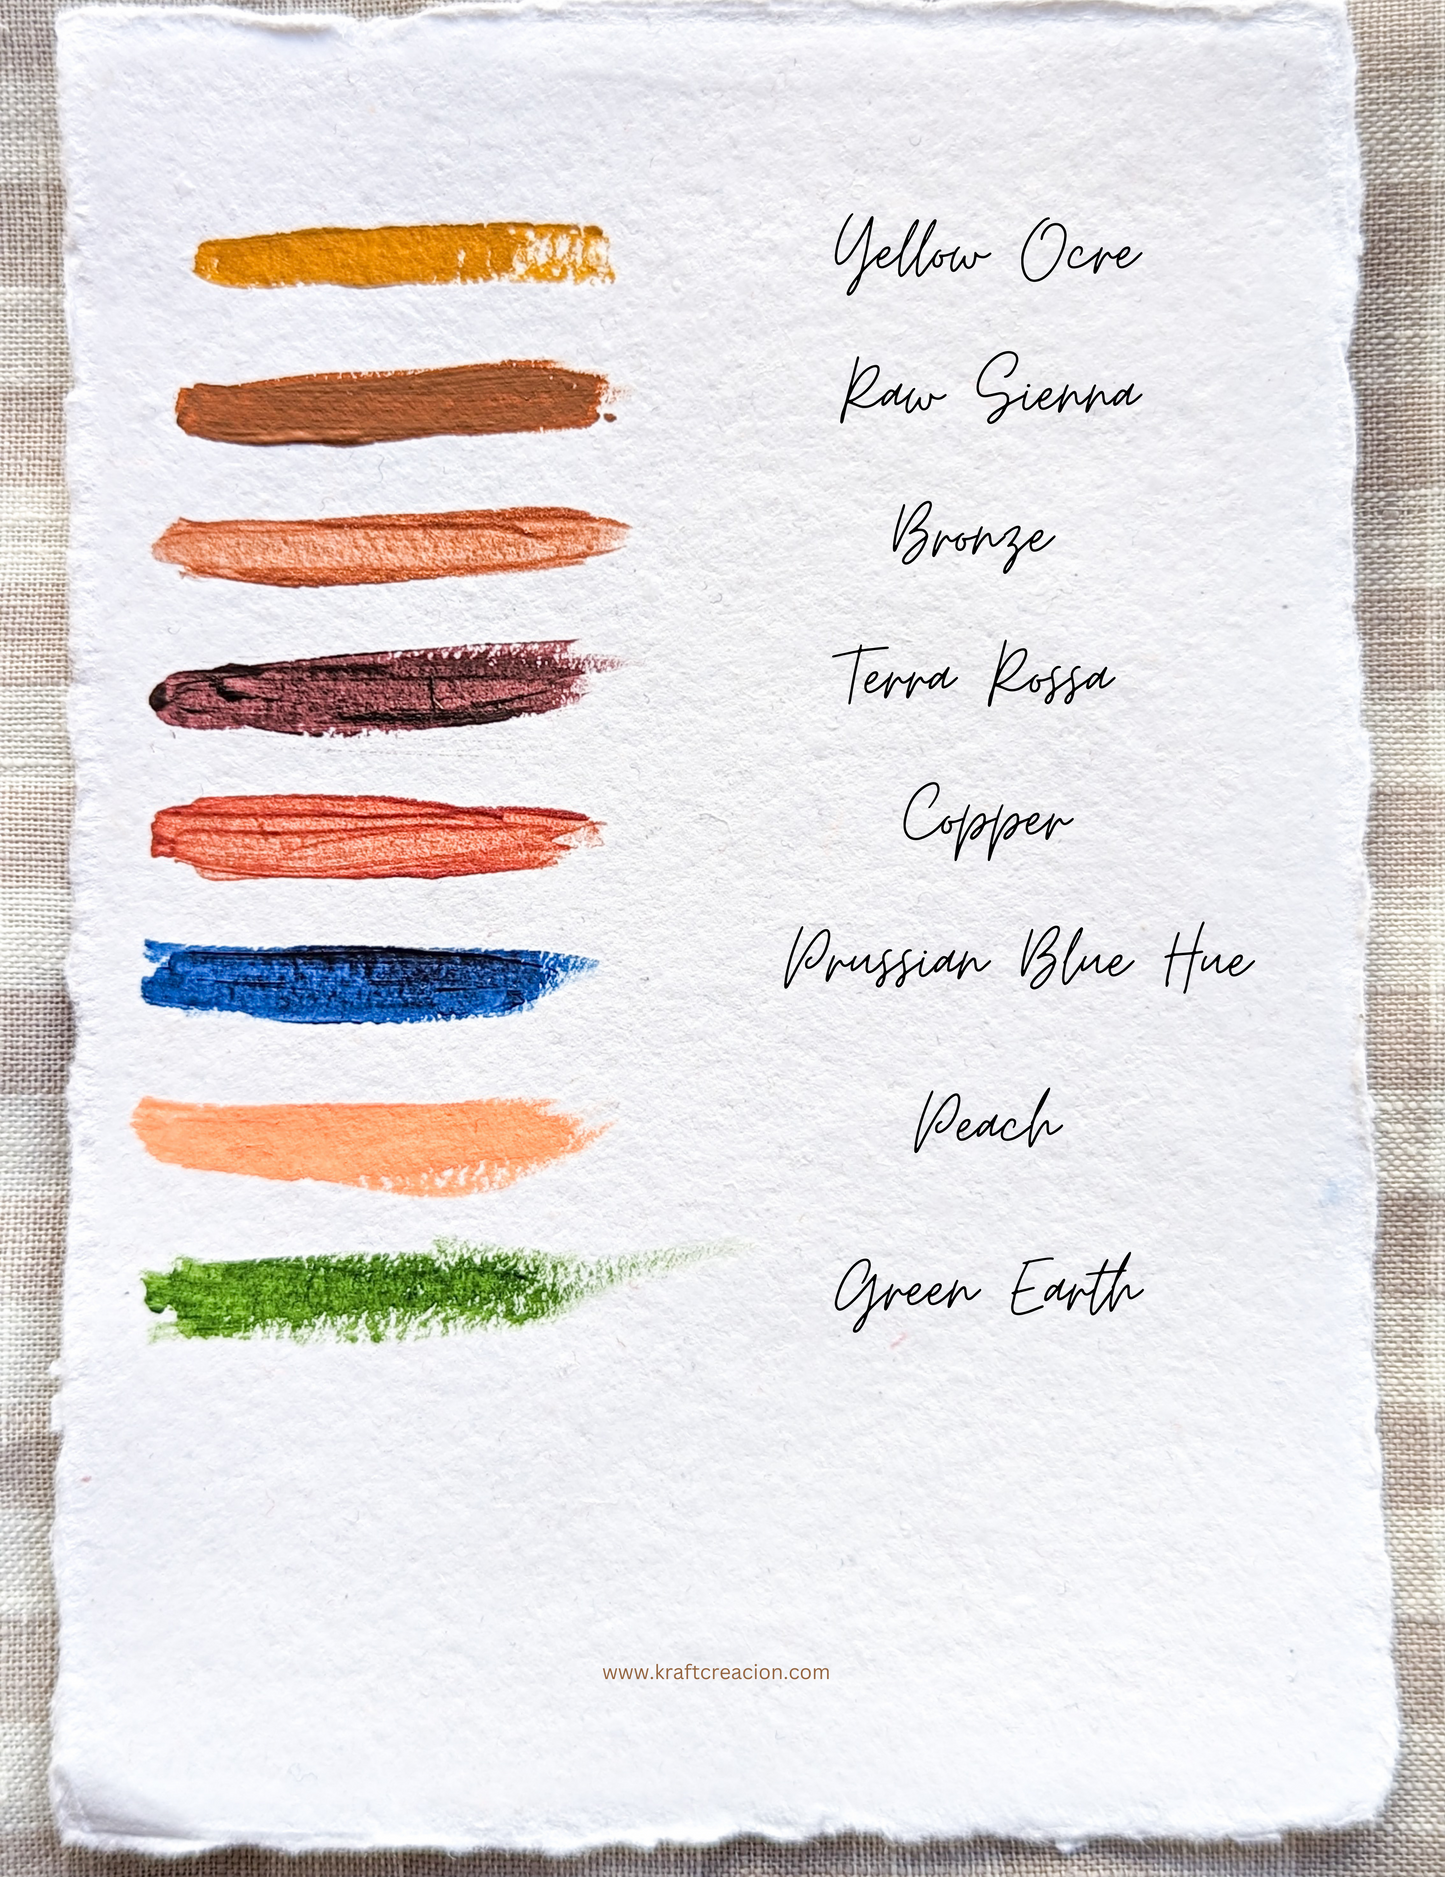 Yellow Ocre
Raw Sienna
Bronze
Terra Rossa
Copper
Prussian Blue Hue
Peach
Green Earth
www.kraftcreacion.com